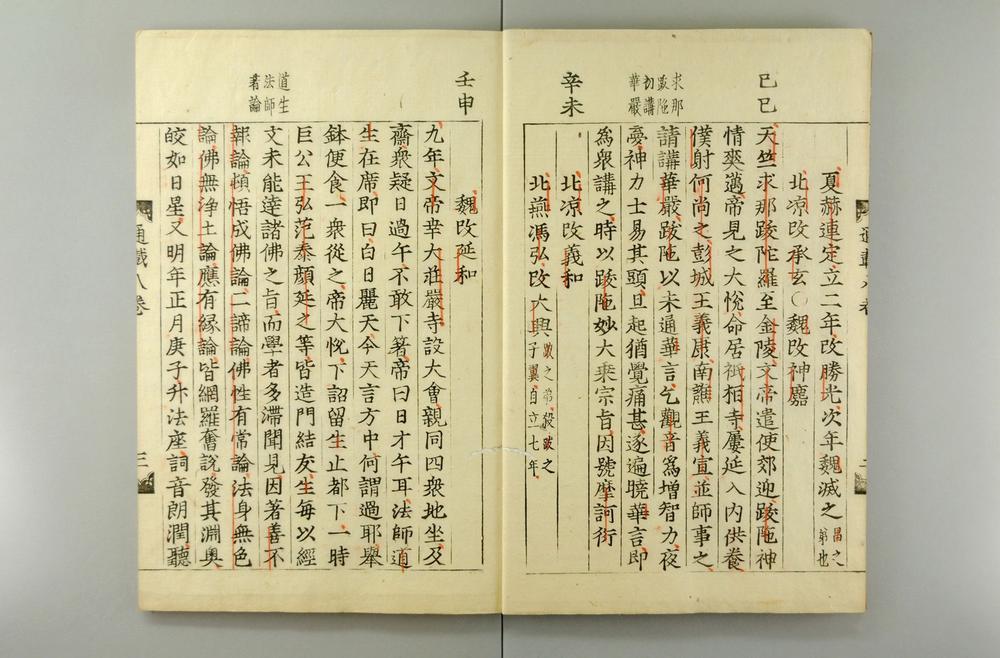 己巳
求那
跋陁
初講
華嚴
辛未
夏赫連定立二年改勝光次年魏滅之昌之弟也
北凉改承玄○魏改神䴥
天竺求那跋陀羅至金陵文帝遣使郊迎跋陁神
情爽邁帝見之大悅命居祇桓寺屢延入内供養
僕射何尚之彭城王義康南譙王義宣並師事之
請講華嚴跋陁以未通華言乞觀音爲增智力夜
夢神力士易其頭旦起猶覺痛甚遂遍曉華言即
爲衆講之時以跋陁妙大乗宗旨因號摩訶衍
北凉改義和
北燕馮弘改大興跋之弟殺跋之子翼自立七年
通載八卷
二
壬申
道生
法師
著論
魏改延和
九年文帝幸大莊嚴寺設大會親同四衆地坐及
齋衆疑日過午不敢下箸帝曰日才午耳法師道
生在席即曰白日麗天今天言方中何謂過耶舉
鉢便食一衆從之帝大悅下詔留生止都下一時
巨公王弘范泰顔延之等皆造門結友生每以經
文未能達諸佛之旨而學者多滯聞見因著善不
報論頓悟成佛論二諦論佛性有常論法身無色
論佛無浄土論應有縁論皆網羅奮説發其淵奥
皎如日星又明年正月庚子升法座詞音朗潤聽
通載八卷
三